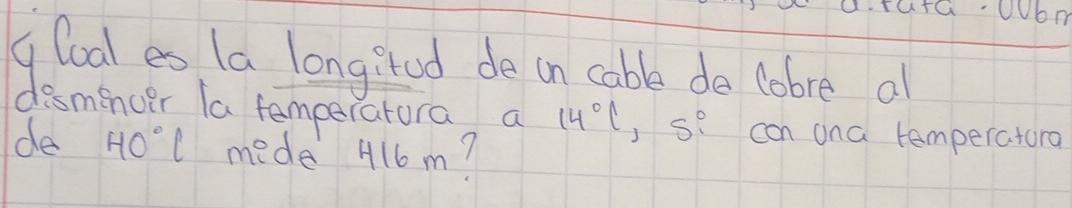 d.tata .006m
¿Cual es la longitud de un cable de Cobre al
disminuir la temperatura a 14°C, si con una temperatura
de 40°C mide 416 m?